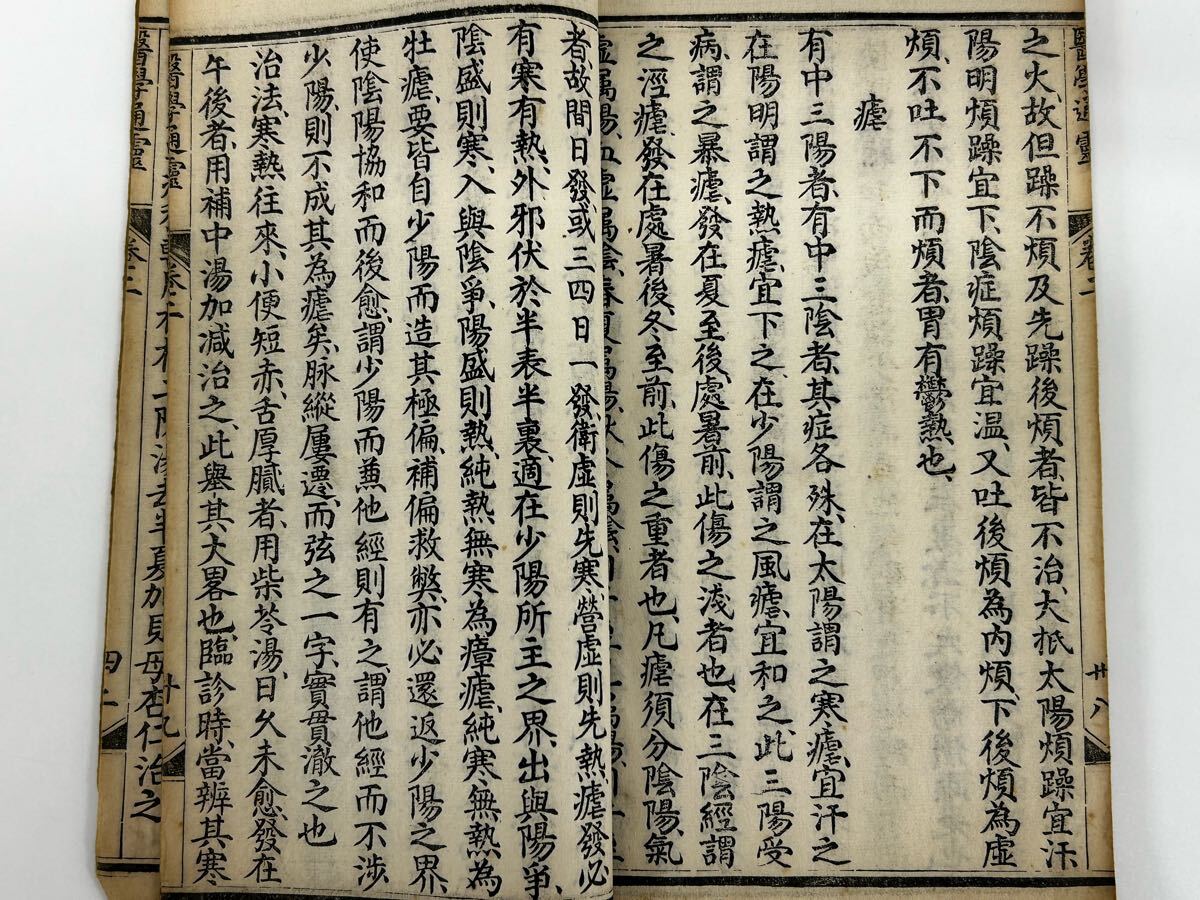 醫學通靈
卷二
卄八
之火、故但躁不煩、及先躁後煩者、皆不治、大抵太陽煩躁宜汗、
陽明煩躁宜下、陰症煩躁宜溫、又吐後煩為內煩、下後煩為虛
煩、不吐不下而煩者、胃有鬱熱也、
瘧
有中三陽者、有中三陰者、其症各殊、在太陽謂之寒瘧、宜汗之
在陽明謂之熱瘧、宜下之、在少陽謂之風瘧、宜和之、此三陽受
病、謂之暴瘧、發在夏至後、處暑前、此傷之淺者也、在三陰經謂
之溼瘧、發在處暑後、冬至前、此傷之重者也、凡瘧須分陰陽、氣
虛屬陽、血虛屬陰、春夏屬陽、秋冬屬陰
者、故間日發、或三四日一發、衛虛則先寒、營虛則先熱、瘧發必
有寒有熱、外邪伏於半表半裏、適在少陽所主之界、出與陽爭、
陰盛則寒、入與陰爭、陽盛則熱、純熱無寒為瘴瘧、純寒無熱為
牡瘧、要皆自少陽而造其極偏、補偏救獘、亦必還返少陽之界、
使陰陽協和而後愈、謂少陽而兼他經則有之、謂他經而不涉
少陽、則不成其為瘧矣、脉縱屢遷、而弦之一字、實貫澈之也
治法、寒熱往來、小便短赤、舌厚膩者、用柴苓湯、日久未愈、發在
午後者、用補中湯加減治之、此舉其大畧也、臨診時、當辨其寒
醫學通靈
卷二
十九
醫學通靈
卷二
四二
去半夏加貝母杏仁治之